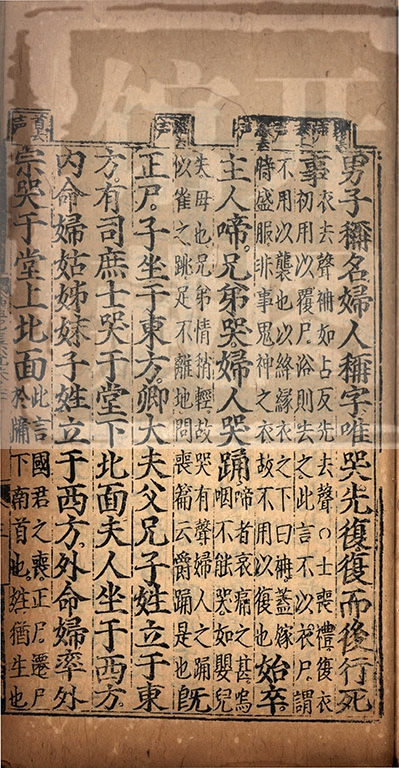 男子稱名婦人稱字唯哭先復復而後行死
事衣去聲衻如占反先去聲○士喪禮復衣
初用以覆尸浴則去之此言不以衣尸謂
不用以襲也以絳緣衣之下曰衻蓋嫁
時盛服非事鬼神之衣故不用以復也始卒
主人啼兄弟哭婦人哭踊啼者哀痛之甚嗚
咽不能哭如嬰兒
失母也兄弟情稍輕故哭有聲婦人之踊
似雀之跳足不離地問喪篇云爵踊是也既
正尸子坐于東方卿大夫父兄子姓立于東
方有司庶士哭于堂下北面夫人坐于西方
內命婦姑姊妹子姓立于西方外命婦率外
宗哭于堂上北面此言國君之喪正尸遷尸
於牖下南首也姓猶生也